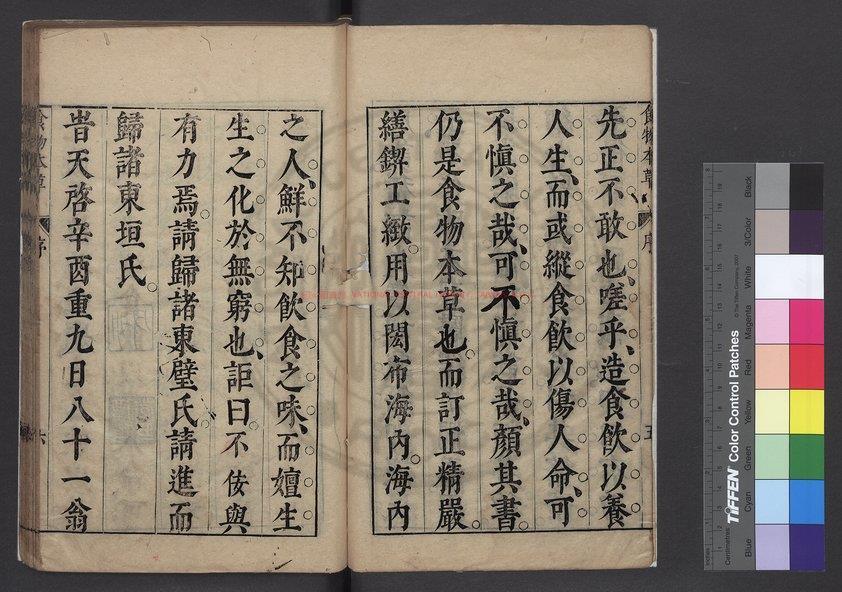 食物本草
序
五
先正不敢也嗟乎造食飲以養
人生而或縱食飲以傷人命可
不慎之哉可不慎之哉顏其書
仍是食物本草也而訂正精嚴
繕鍥工緻用以閎布海內海內
之人鮮不知飲食之味而嬗生
生之化於無窮也詎曰不佞與
有力焉請歸諸東壁氏請進而
歸諸東垣氏
旹天啓辛酉重九日八十一翁
食物本草
序
六
TIFFEN Color Control Patches
© The Tiffen Company, 2007
Inches
Centimetres
Blue
Cyan
Green
Yellow
Red
Magenta
White
3/Color
Black